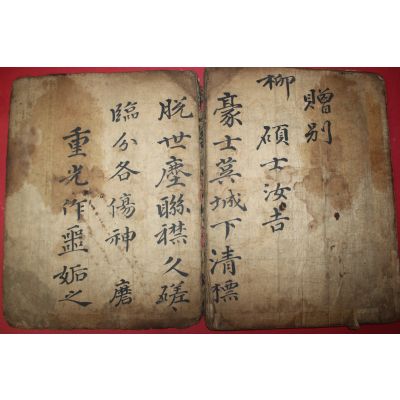 贈別
柳碩士汝吉
豪士蓂城下清標
脫世塵聯襟久磋〻
臨分各傷神 磨
重光作噩姤之